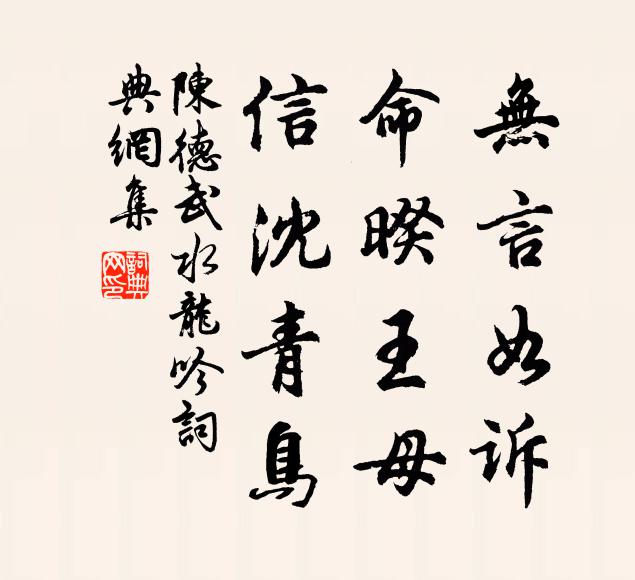 無言如訴
命暌王母
信沈青鳥
陳德武水龍吟詞
典網集
詞典網印